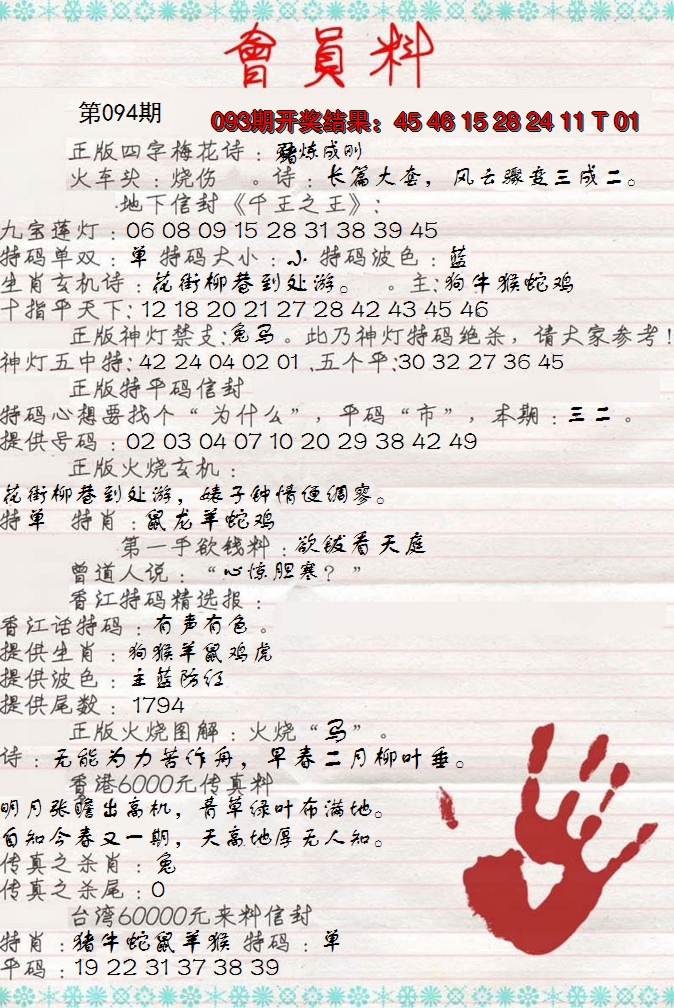 會員料
第094期
093期开奖结果：45 46 15 28 24 11 T 01
正版四字梅花诗：猪炼成刚
火车头：烧伤 。诗：长篇大套，风云骤变三成二。
地下信封《千王之王》：
九宝莲灯：06 08 09 15 28 31 38 39 45
特码单双：单 特码大小：小 特码波色：蓝
生肖玄机诗：花街柳巷到处游。 。主：狗牛猴蛇鸡
十指平天下：12 18 20 21 27 28 42 43 45 46
正版神灯禁支：兔马。此乃神灯特码绝杀，请大家参考！
神灯五中特：42 24 04 02 01 .五个平：30 32 27 36 45
正版特平码信封
特码心想要找个“为什么”，平码“市”，本期：三二。
提供号码：02 03 04 07 10 20 29 38 42 49
正版火烧玄机：
花街柳巷到处游，婊子钟情便绸寥。
特单 特肖：鼠龙羊蛇鸡
第一手欲钱料：欲钱看天庭
曾道人说：“心惊胆寒？”
香江特码精选报：
香江话特码：有声有色。
提供生肖：狗猴羊鼠鸡虎
提供波色：主蓝防红
提供尾数：1794
正版火烧图解：火烧“马”。
诗：无能为力苦作舟，早春二月柳叶垂。
香港6000元传真料
明月张瞻出高机，青草绿叶布满地。
自知今春又一期，天高地厚无人知。
传真之杀肖：兔
传真之杀尾：0
台湾60000元来料信封
特肖：猪牛蛇鼠羊猴 特码：单
平码：19 22 31 37 38 39